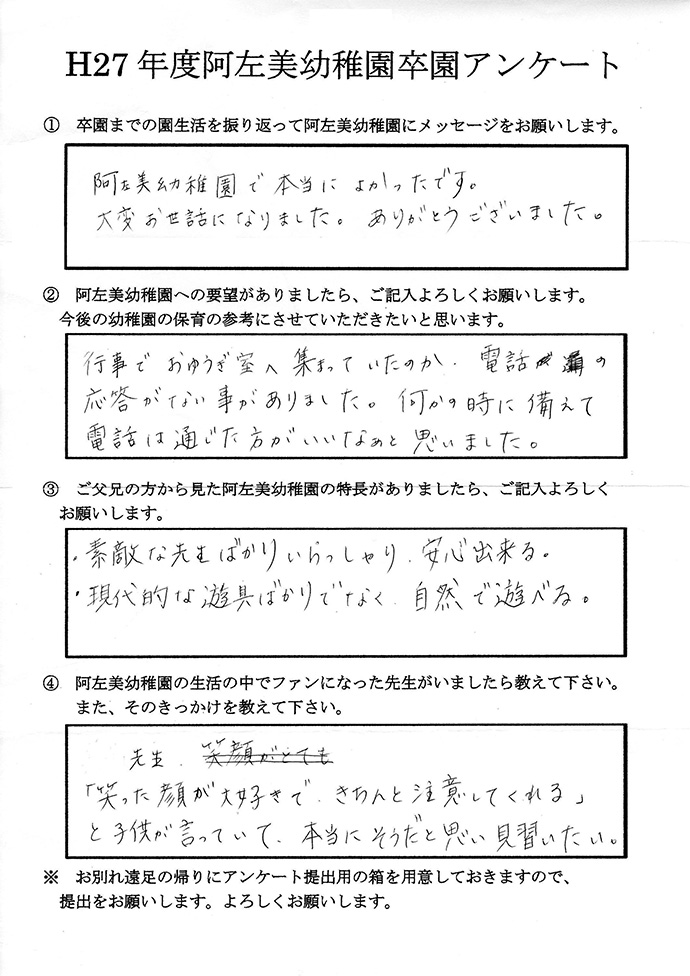 H27年度阿左美幼稚園卒園アンケート
① 卒園までの園生活を振り返って阿左美幼稚園にメッセージをお願いします。
阿左美幼稚園で本当によかったです。
大変お世話になりました。ありがとうございました。
② 阿左美幼稚園への要望がありましたら、ご記入よろしくお願いします。
今後の幼稚園の保育の参考にさせていただきたいと思います。
行事でおゆうぎ室へ集まっていたのか、電話の
応答がない事がありました。何かの時に備えて
電話は通じた方がいいなぁと思いました。
③ ご父兄の方から見た阿左美幼稚園の特長がありましたら、ご記入よろしく
お願いします。
・素敵な先生ばかりいらっしゃり、安心出来る。
・現代的な遊具ばかりでなく、自然で遊べる。
④ 阿左美幼稚園の生活の中でファンになった先生がいましたら教えて下さい。
また、そのきっかけを教えて下さい。
先生、笑顔がとても
「笑った顔が大好きで、きちんと注意してくれる」
と子供が言っていて、本当にそうだと思い見習いたい。
※ お別れ遠足の帰りにアンケート提出用の箱を用意しておきますので、
提出をお願いします。よろしくお願いします。